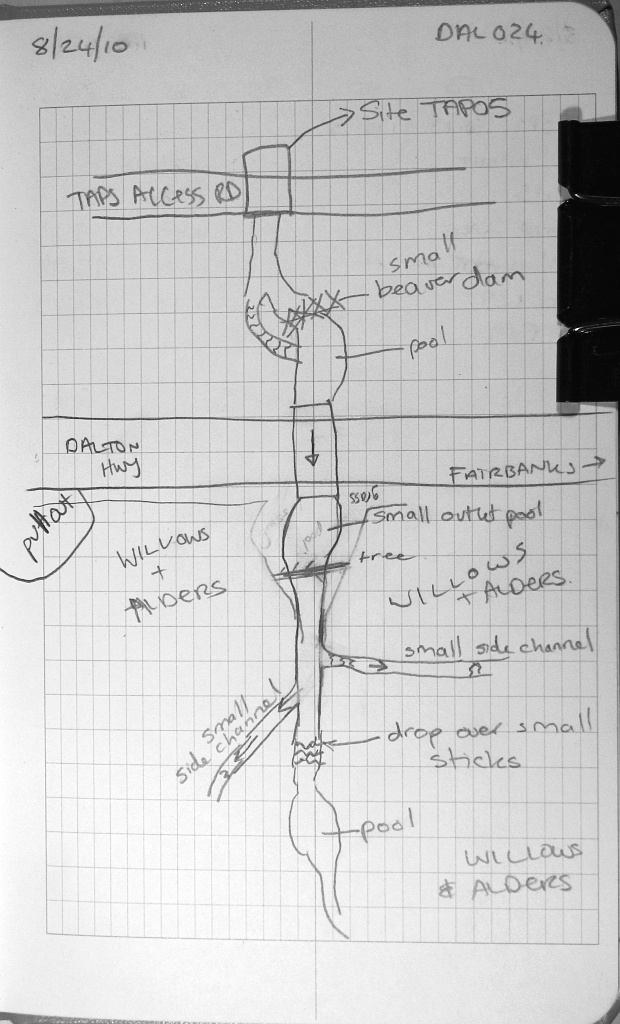 8/24/10
DAL024
Site TAP05
TAPS ACCESS RD
small
beaver dam
pool
DALTON
HWY
FAIRBANKS
pullout
grass
small outlet pool
pool
tree
WILLOWS
+
ALDERS
WILLOWS
+ ALDERS.
small side channel
small
side channel
drop over small
sticks
pool
WILLOWS
& ALDERS